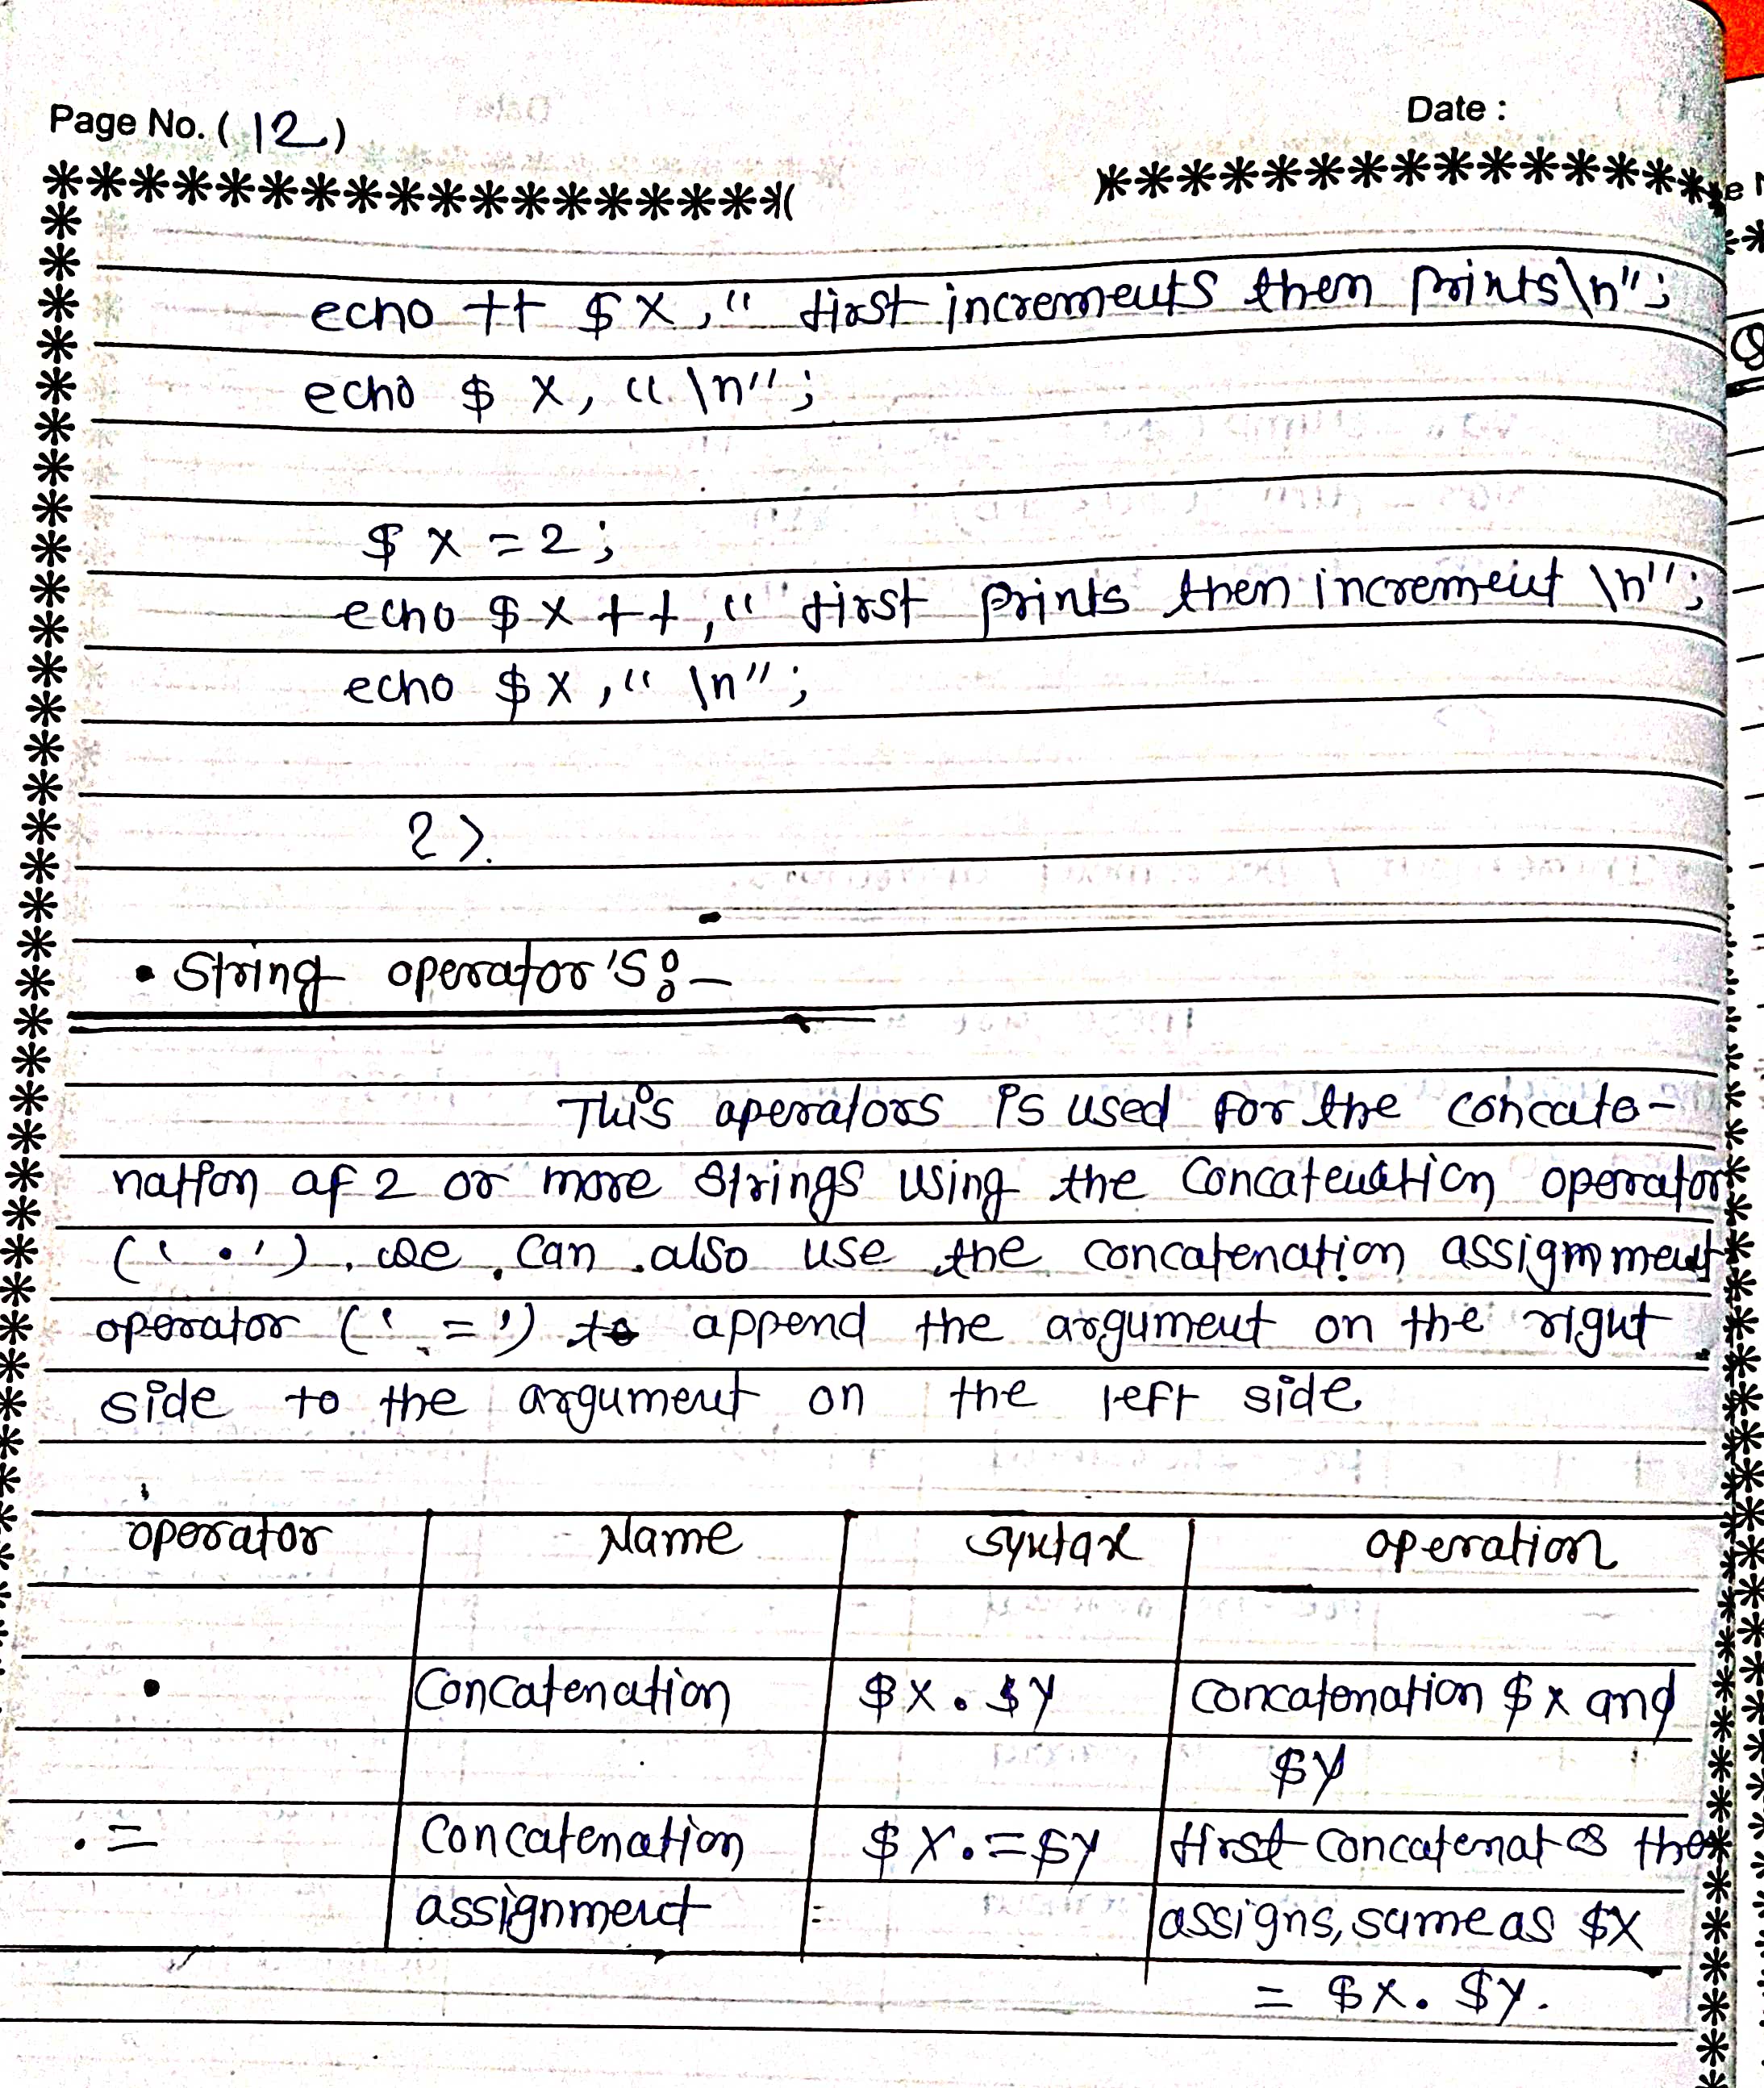 Page No. (12)
Date :
echo ++ $x, " first increments then prints\n";
echo $x, "\n";
$x = 2;
echo $x++, " first prints then increment \n";
echo $x, " \n";
?>
• String operator's:-
This operators is used for the concate-
nation of 2 or more strings using the Concatenation operator
('.'). we can also use the concatenation assignment
operator ('.=') to append the argument on the right
side to the argument on the left side
operator Name syntax operation
. Concatenation $x . $y concatenation $x and
$y
.= Concatenation $x .= $y first concatenates then
assignment = assigns, same as $x
= $x . $y.